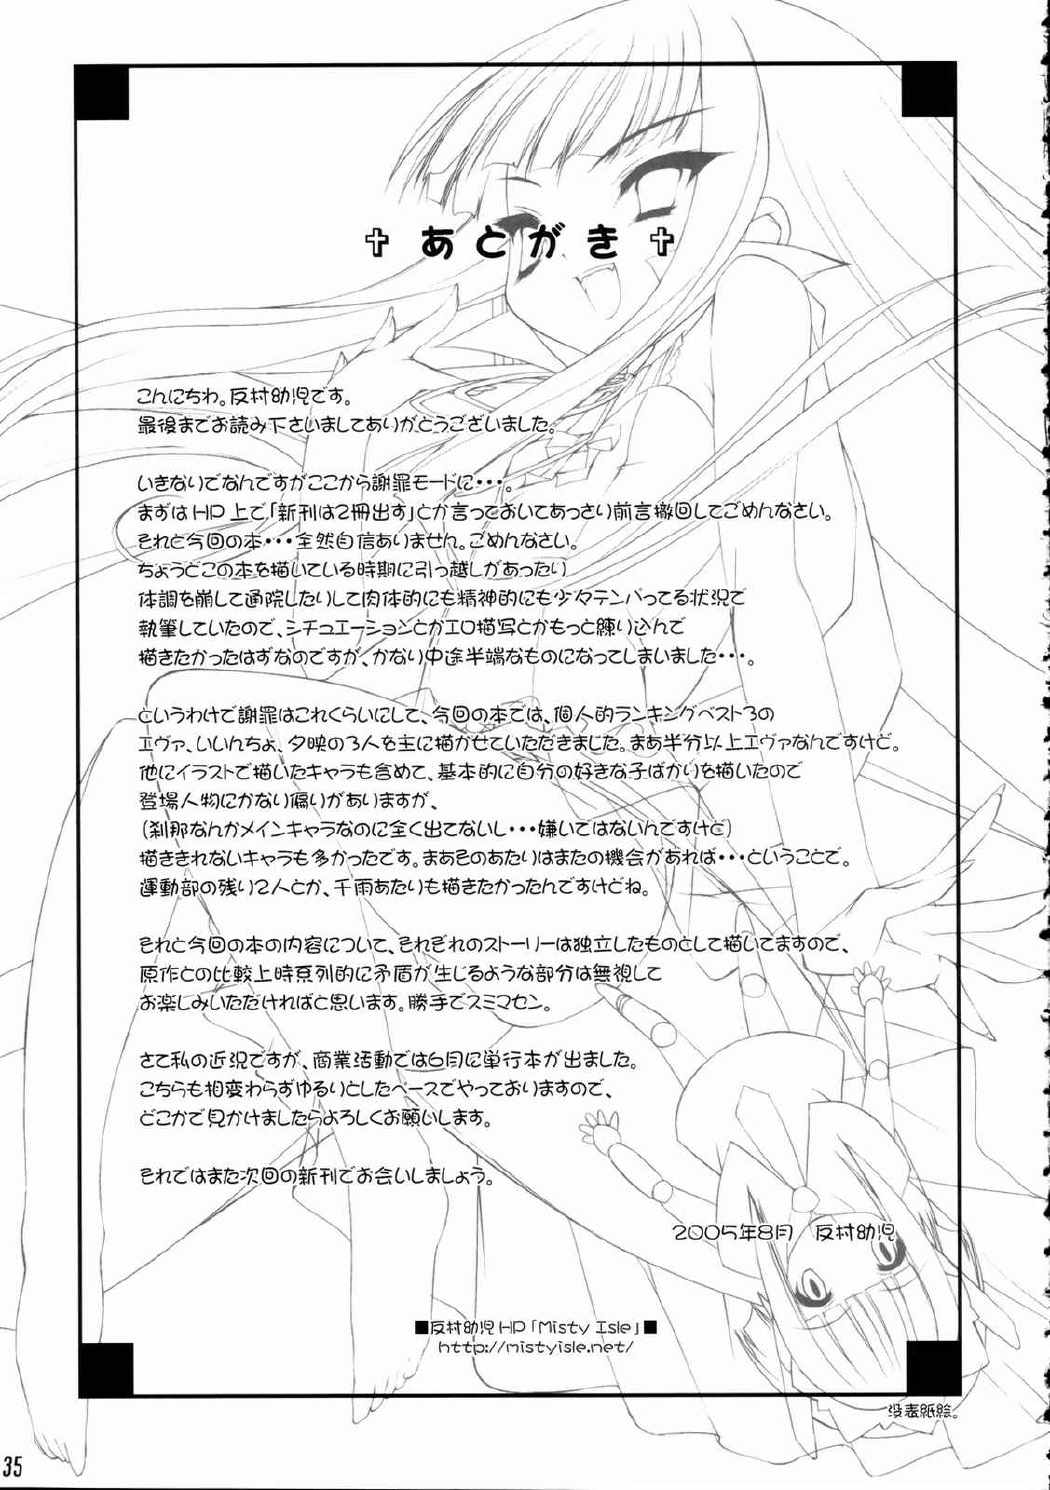 ✝ あとがき ✝
こんにちわ。反村幼児です。
最後までお読み下さいましてありがとうございました。
いきなりでなんですがここから謝罪モードに・・・。
まずはHP上で「新刊は2冊出す」とか言っておいてあっさり前言撤回してごめんなさい。
それと今回の本・・・全然自信ありません。ごめんなさい。
ちょうどこの本を描いている時期に引っ越しがあったり
体調を崩して通院したりして肉体的にも精神的にも少々テンパってる状況で
執筆していたので、シチュエーションとかエロ描写とかもっと練り込んで
描きたかったはずなのですが、かなり中途半端なものになってしまいました・・・。
というわけで謝罪はこれくらいにして、今回の本では、個人的ランキングベスト3の
エヴァ、いいんちょ、夕映の3人を主に描かせていただきました。まあ半分以上エヴァなんですけど。
他にイラストで描いたキャラも含めて、基本的に自分の好きな子ばかりを描いたので
登場人物にかなり偏りがありますが、
(刹那なんかメインキャラなのに全く出てないし・・・嫌いではないんですけど)
描ききれないキャラも多かったです。まあそのあたりはまたの機会があれば・・・ということで。
運動部の残り2人とか、千雨あたりも描きたかったんですけどね。
それと今回の本の内容について、それぞれのストーリーは独立したものとして描いてますので、
原作との比較上時系列的に矛盾が生じるような部分は無視して
お楽しみいただければと思います。勝手でスミマセン。
さて私の近況ですが、商業活動では6月に単行本が出ました。
こちらも相変わらずゆるりとしたペースでやっておりますので、
どこかで見かけましたらよろしくお願いします。
それではまた次回の新刊でお会いしましょう。
2005年8月 反村幼児
■反村幼児HP「Misty Isle」■
http://mistyisle.net/
没表紙絵。
35